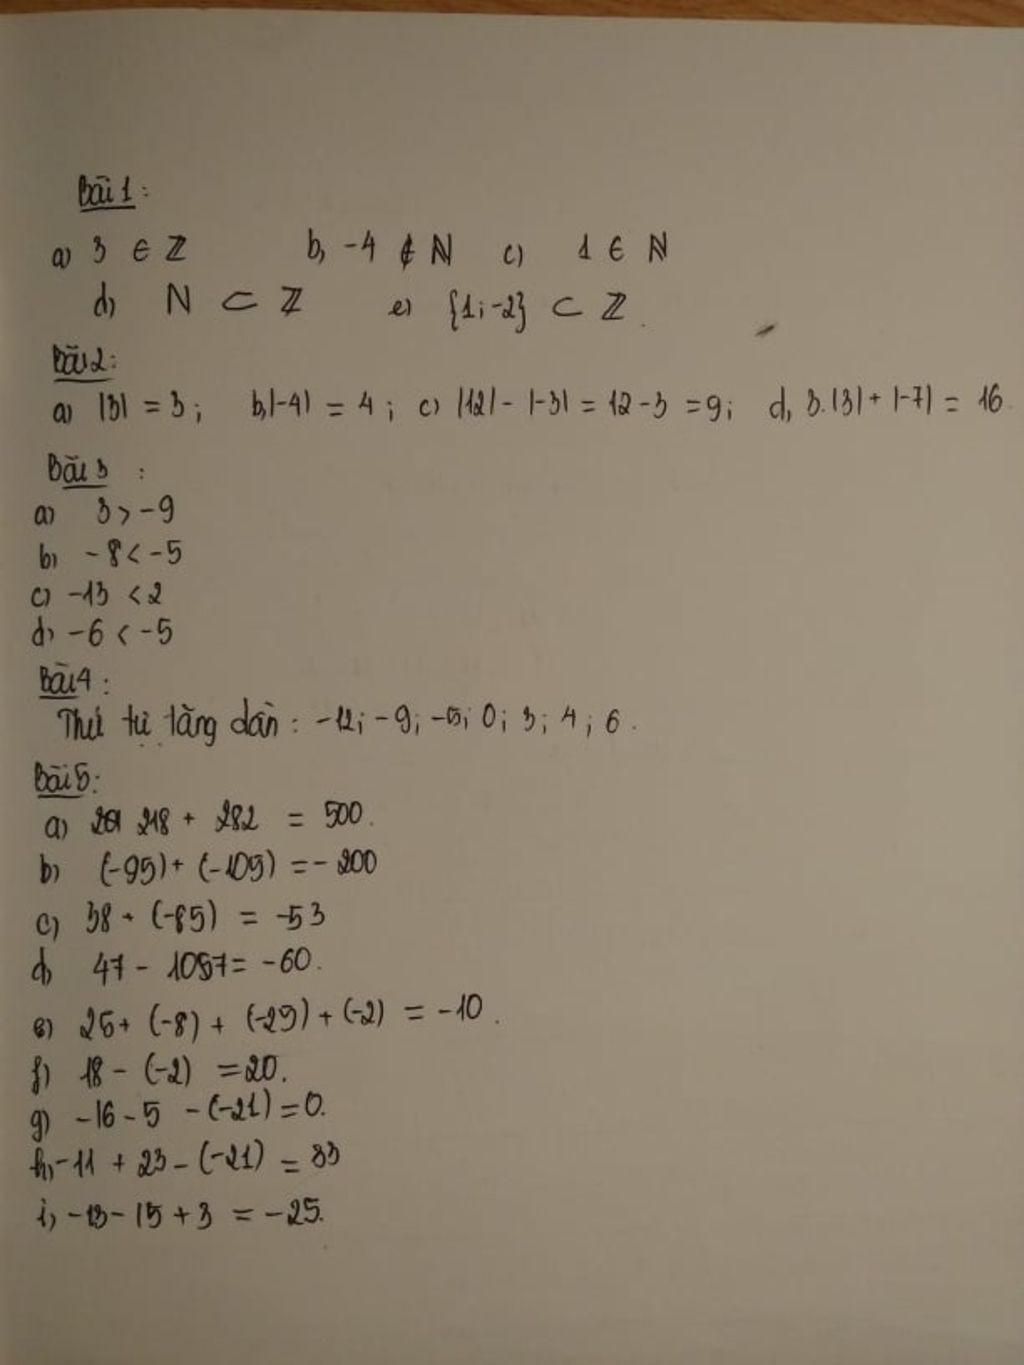 Bài 1:
a) 3 ∈ ℤ b, -4 ∉ ℕ c) 1 ∈ ℕ
d) ℕ ⊂ ℤ e) {1;-2} ⊂ ℤ.
Bài 2:
a) |3| = 3; b,|-4| = 4; c) |12| - |-3| = 12 - 3 = 9; d, 3.|3| + |-7| = 16.
Bài 3 :
a) 3 > -9
b) -8 < -5
c) -13 < 2
d) -6 < -5
Bài 4:
Thứ tự tăng dần: -12; -9; -5; 0; 3; 4; 6.
Bài 5:
a) 218 + 282 = 500.
b) (-95) + (-105) = -200
c) 38 + (-85) = -53
d) 47 - 107 = -60.
e) 25 + (-8) + (-29) + (-2) = -10.
f) 18 - (-2) = 20.
g) -16 - 5 - (-21) = 0.
h, -11 + 23 - (-21) = 33
i, -13 - 15 + 3 = -25.